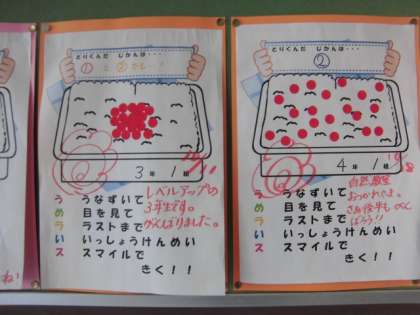 とりくんだ じかんは・・・
①
3年 1組
レベルアップの
3年生です。
がんばりました。
う うなずいて
め 目を見て
ラ ラストまで
い いっしょうけんめい
ス スマイルで
きく！！
とりくんだ じかんは・・・
②
4年 1組
自然教室
おつかれさま。
う うなずいて
め 目を見て
ラ ラストまで
い いっしょうけんめい
ス スマイルで
きく！！